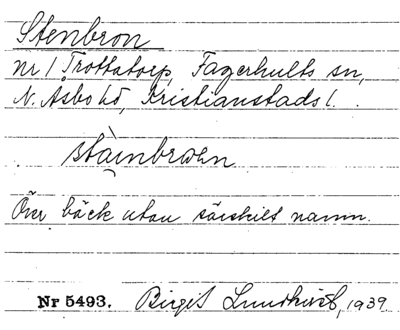 Stenbron
nr 1 Trottatorp, Fagerhults sn,
N. Åsbo hd, Kristianstads l.
Över bäck utan särskilt namn.
Nr 5493. Birgit Lundkvist, 1939